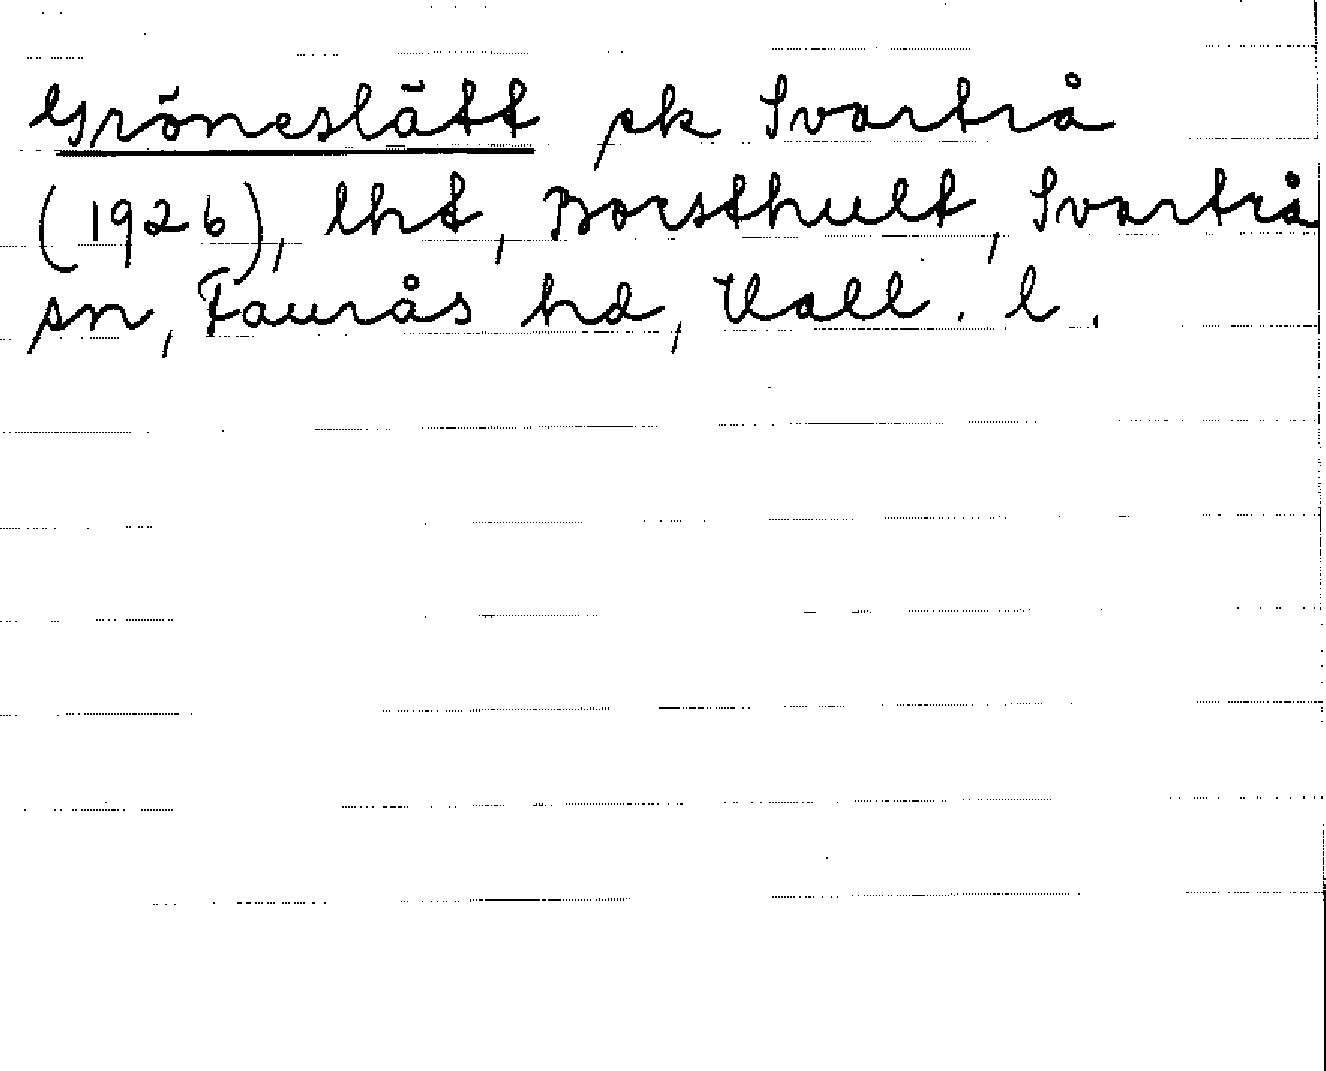 Gröneslätt pk Svartrå
(1926), lht, Borsthult, Svartrå
sn, Faurås hd, Hall. l.